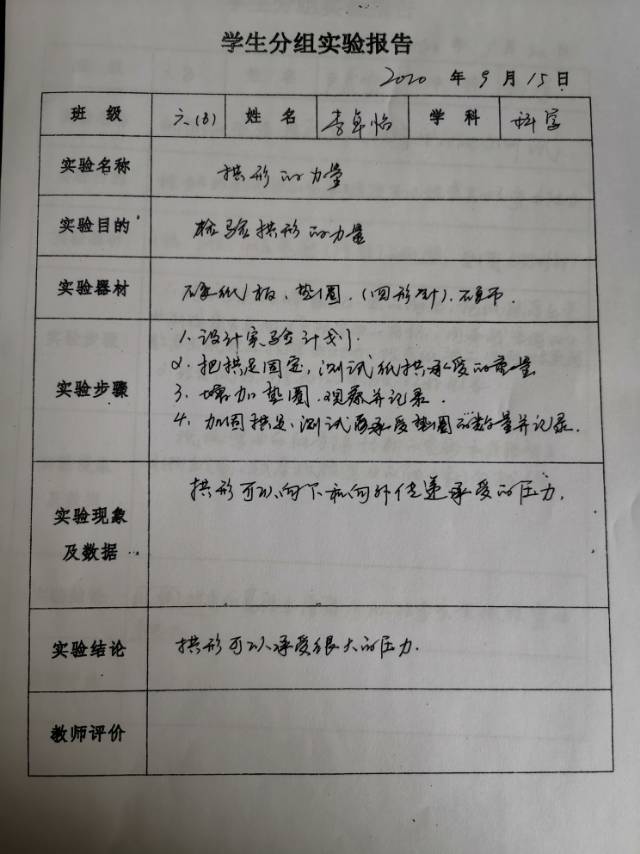 学生分组实验报告
2020 年 9 月 15 日
班 级 六(6) 姓 名 李卓怡 学 科 科学
实验名称 拱形的力量
实验目的 检验拱形的力量
实验器材 硬纸板、垫圈、(回形针)、
实验步骤
1. 设计实验计划.
2. 把拱足固定,测试纸拱承受的重量
3. 增加垫圈.观察并记录.
4. 加固拱足,测试承受垫圈的数量并记录.
实验现象及数据 拱形可以向下和向外传递承受的压力.
实验结论 拱形可以承受很大的压力.
教师评价